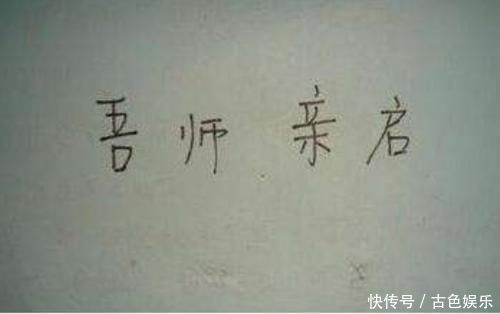 吾师 亲启
快传号/古色娱乐